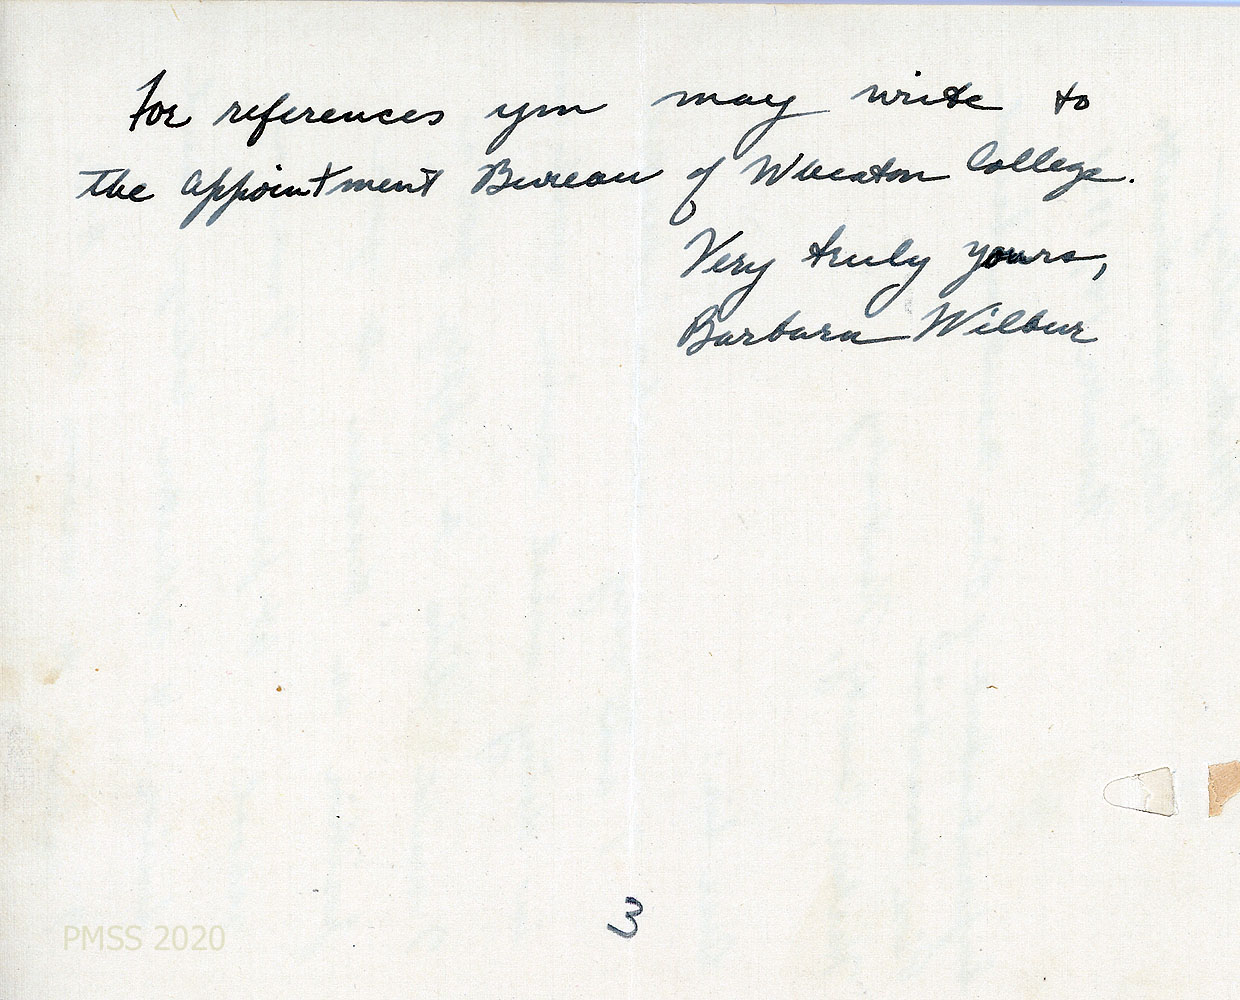 For references you may write to
the Appointment Bureau of Wheaton College.
Very truly yours,
Barbara Wilbur
3
PMSS 2020